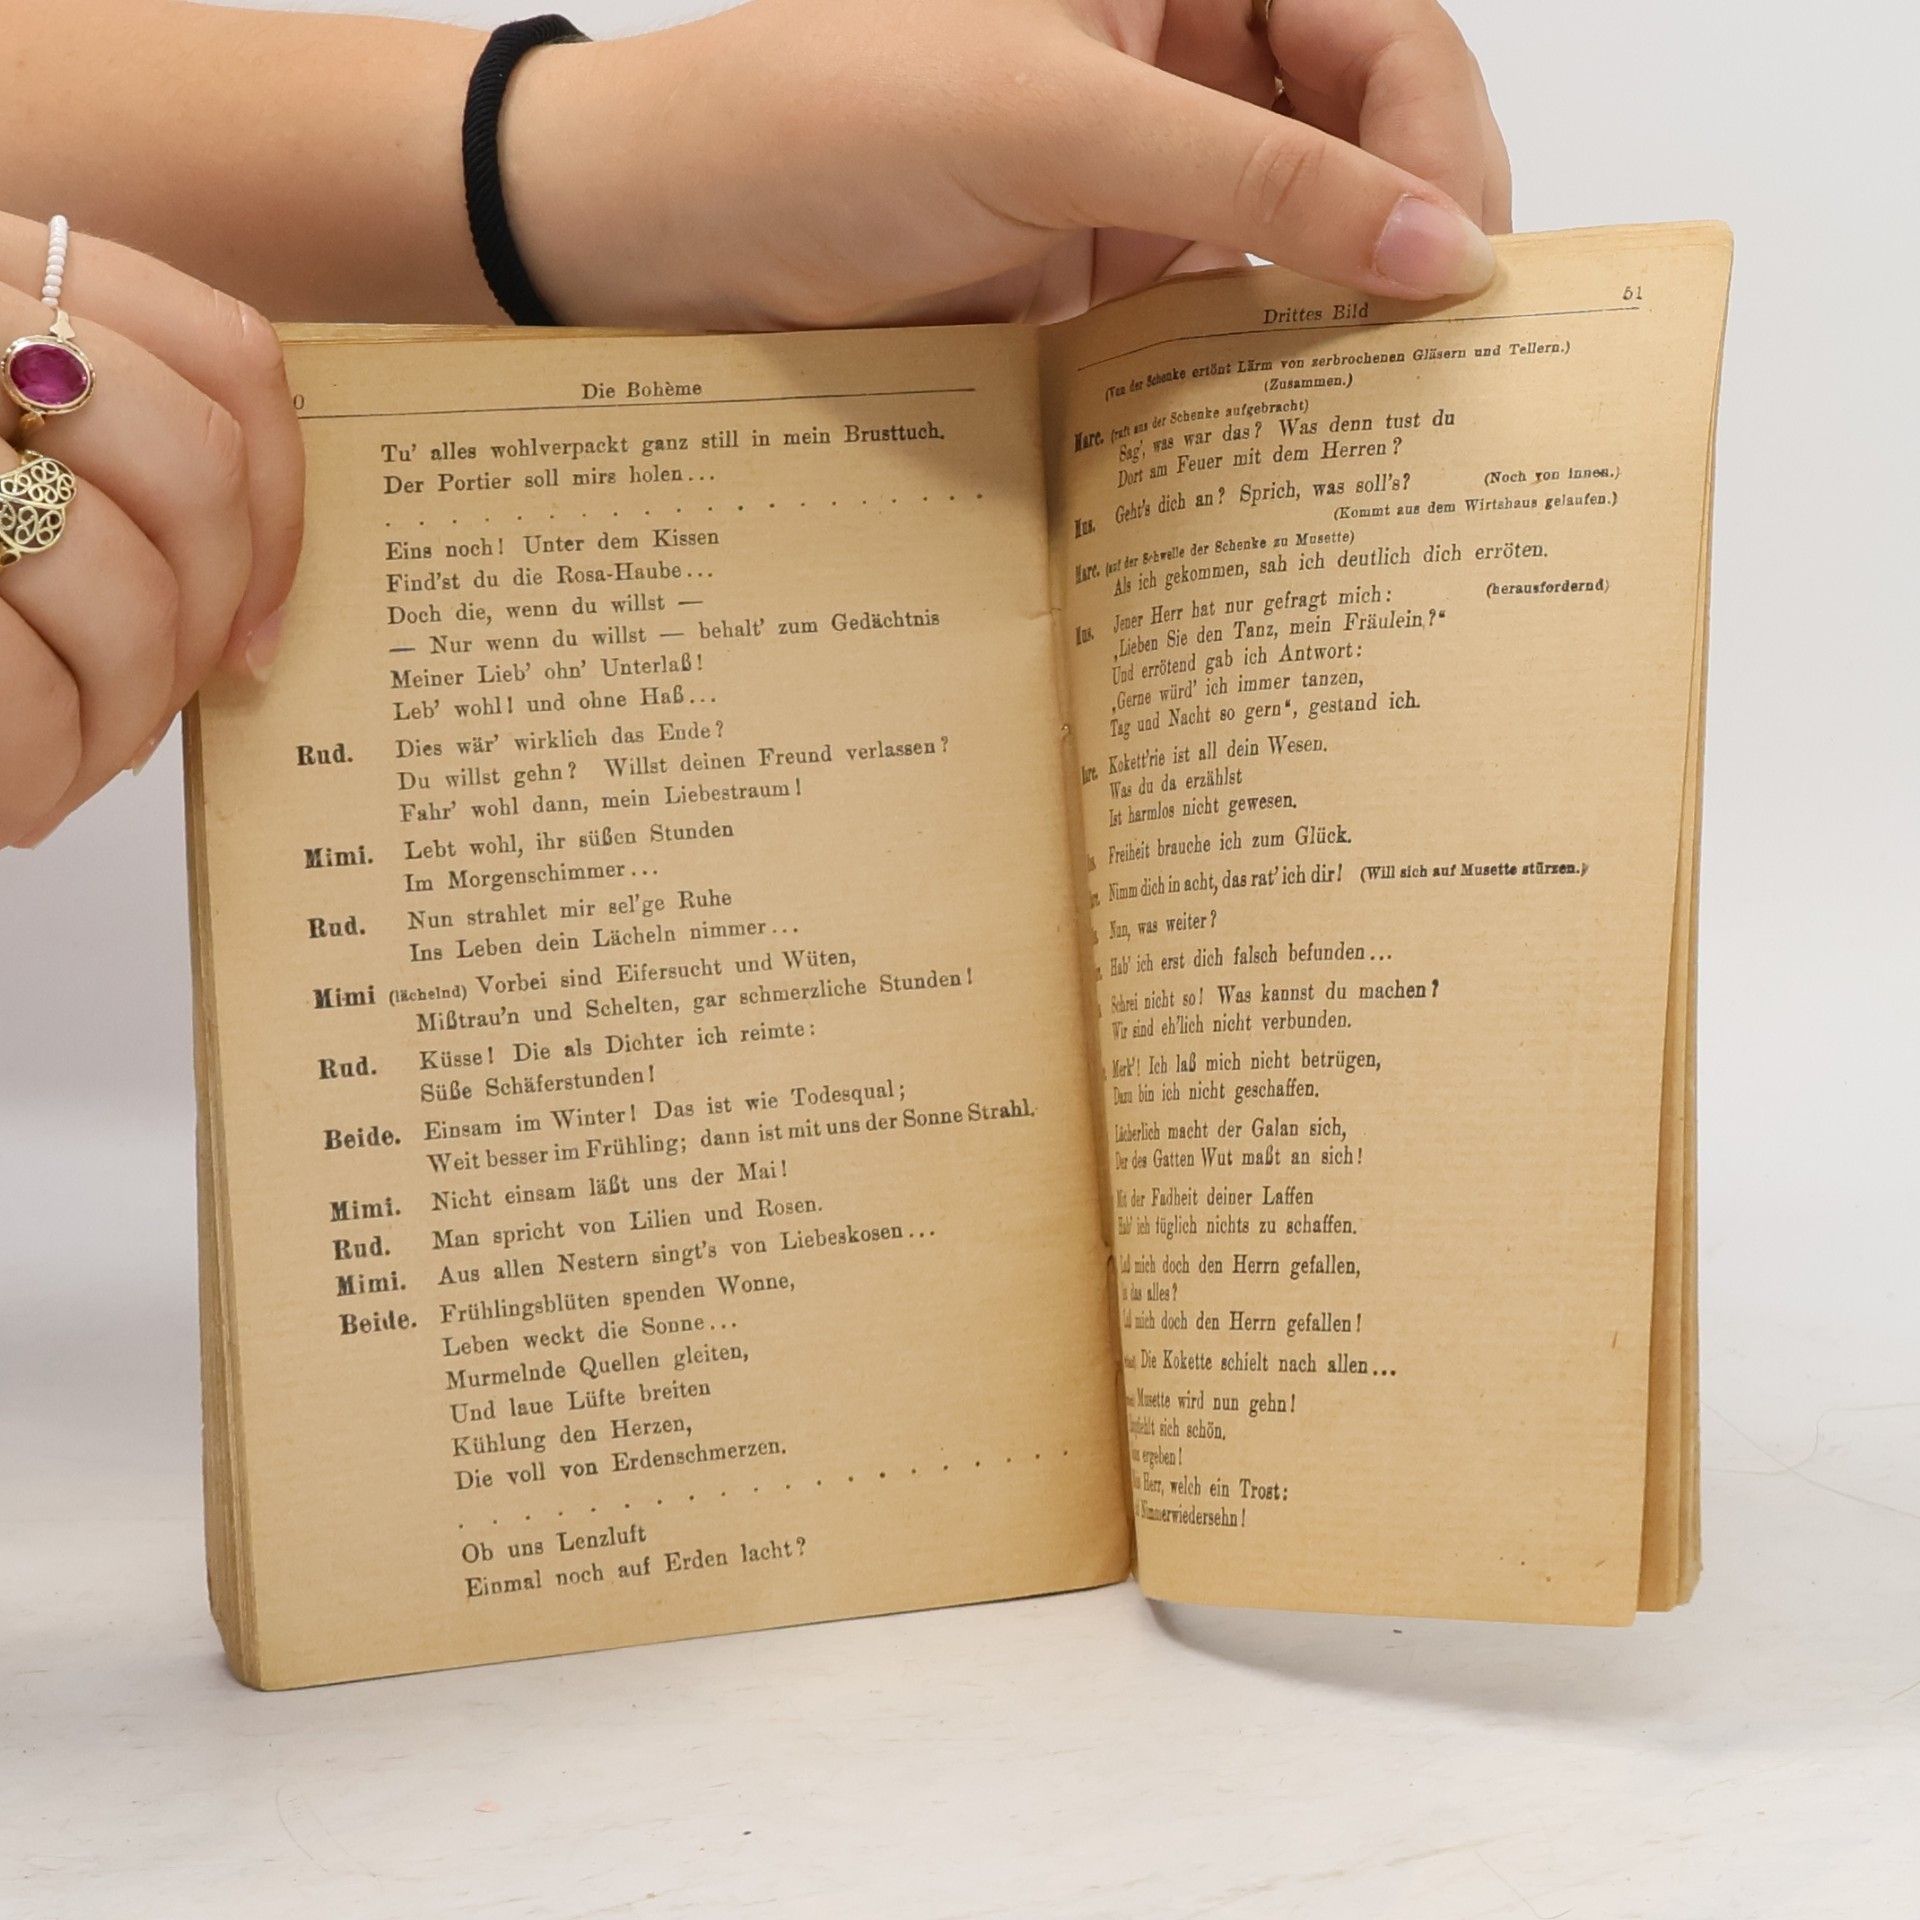 0
Die Bohème
Tu' alles wohlverpackt ganz still in mein Brusttuch.
Der Portier soll mirs holen...
. . . . . . . . . . . . . . . . . . .
Eins noch! Unter dem Kissen
Find'st du die Rosa-Haube...
Doch die, wenn du willst —
— Nur wenn du willst — behalt' zum Gedächtnis
Meiner Lieb' ohn' Unterlaß!
Leb' wohl! und ohne Haß...
Rud. Dies wär' wirklich das Ende?
Du willst gehn? Willst deinen Freund verlassen?
Fahr' wohl dann, mein Liebestraum!
Mimi. Lebt wohl, ihr süßen Stunden
Im Morgenschimmer...
Rud. Nun strahlet mir sel'ge Ruhe
Ins Leben dein Lächeln nimmer...
Mimi (lächelnd) Vorbei sind Eifersucht und Wüten,
Mißtrau'n und Schelten, gar schmerzliche Stunden!
Rud. Küsse! Die als Dichter ich reimte:
Süße Schäferstunden!
Beide. Einsam im Winter! Das ist wie Todesqual;
Weit besser im Frühling; dann ist mit uns der Sonne Strahl.
Mimi. Nicht einsam läßt uns der Mai!
Rud. Man spricht von Lilien und Rosen.
Mimi. Aus allen Nestern singt's von Liebeskosen...
Beide. Frühlingsblüten spenden Wonne,
Leben weckt die Sonne...
Murmelnde Quellen gleiten,
Und laue Lüfte breiten
Kühlung den Herzen,
Die voll von Erdenschmerzen.
. . . . . . . . . . . . . . . . . . .
Ob uns Lenzluft
Einmal noch auf Erden lacht?
Drittes Bild
51
(Von der Schenke ertönt Lärm von zerbrochenen Gläsern und Tellern.)
(Zusammen.)
Marc. (ruft aus der Schenke aufgebracht)
Sag', was war das? Was denn tust du
Dort am Feuer mit dem Herren?
(Noch von innen.)
Mus. Geht's dich an? Sprich, was soll's?
(Kommt aus dem Wirtshaus gelaufen.)
Marc. (auf der Schwelle der Schenke zu Musette)
Als ich gekommen, sah ich deutlich dich erröten.
Mus. Jener Herr hat nur gefragt mich: (herausfordernd)
„Lieben Sie den Tanz, mein Fräulein?“
Und errötend gab ich Antwort:
„Gerne würd' ich immer tanzen,
Tag und Nacht so gern“, gestand ich.
Kokett'rie ist all dein Wesen.
Was du da erzählst
Ist harmlos nicht gewesen.
Freiheit brauche ich zum Glück.
Nimm dich in acht, das rat' ich dir! (Will sich auf Musette stürzen.)
Nun, was weiter?
Hab' ich erst dich falsch befunden...
Schrei nicht so! Was kannst du machen?
Wir sind eh'lich nicht verbunden.
Merk'! Ich laß mich nicht betrügen,
Dazu bin ich nicht geschaffen.
Lächerlich macht der Galan sich,
Der des Gatten Wut maßt an sich!
Mit der Fadheit deiner Laffen
Hab' ich füglich nichts zu schaffen.
Laß mich doch den Herrn gefallen,
das alles?
Laß mich doch den Herrn gefallen!
Die Kokette schielt nach allen...
Musette wird nun gehn!
sich schön,
ergeben!
Herr, welch ein Trost:
Nimmerwiedersehn!